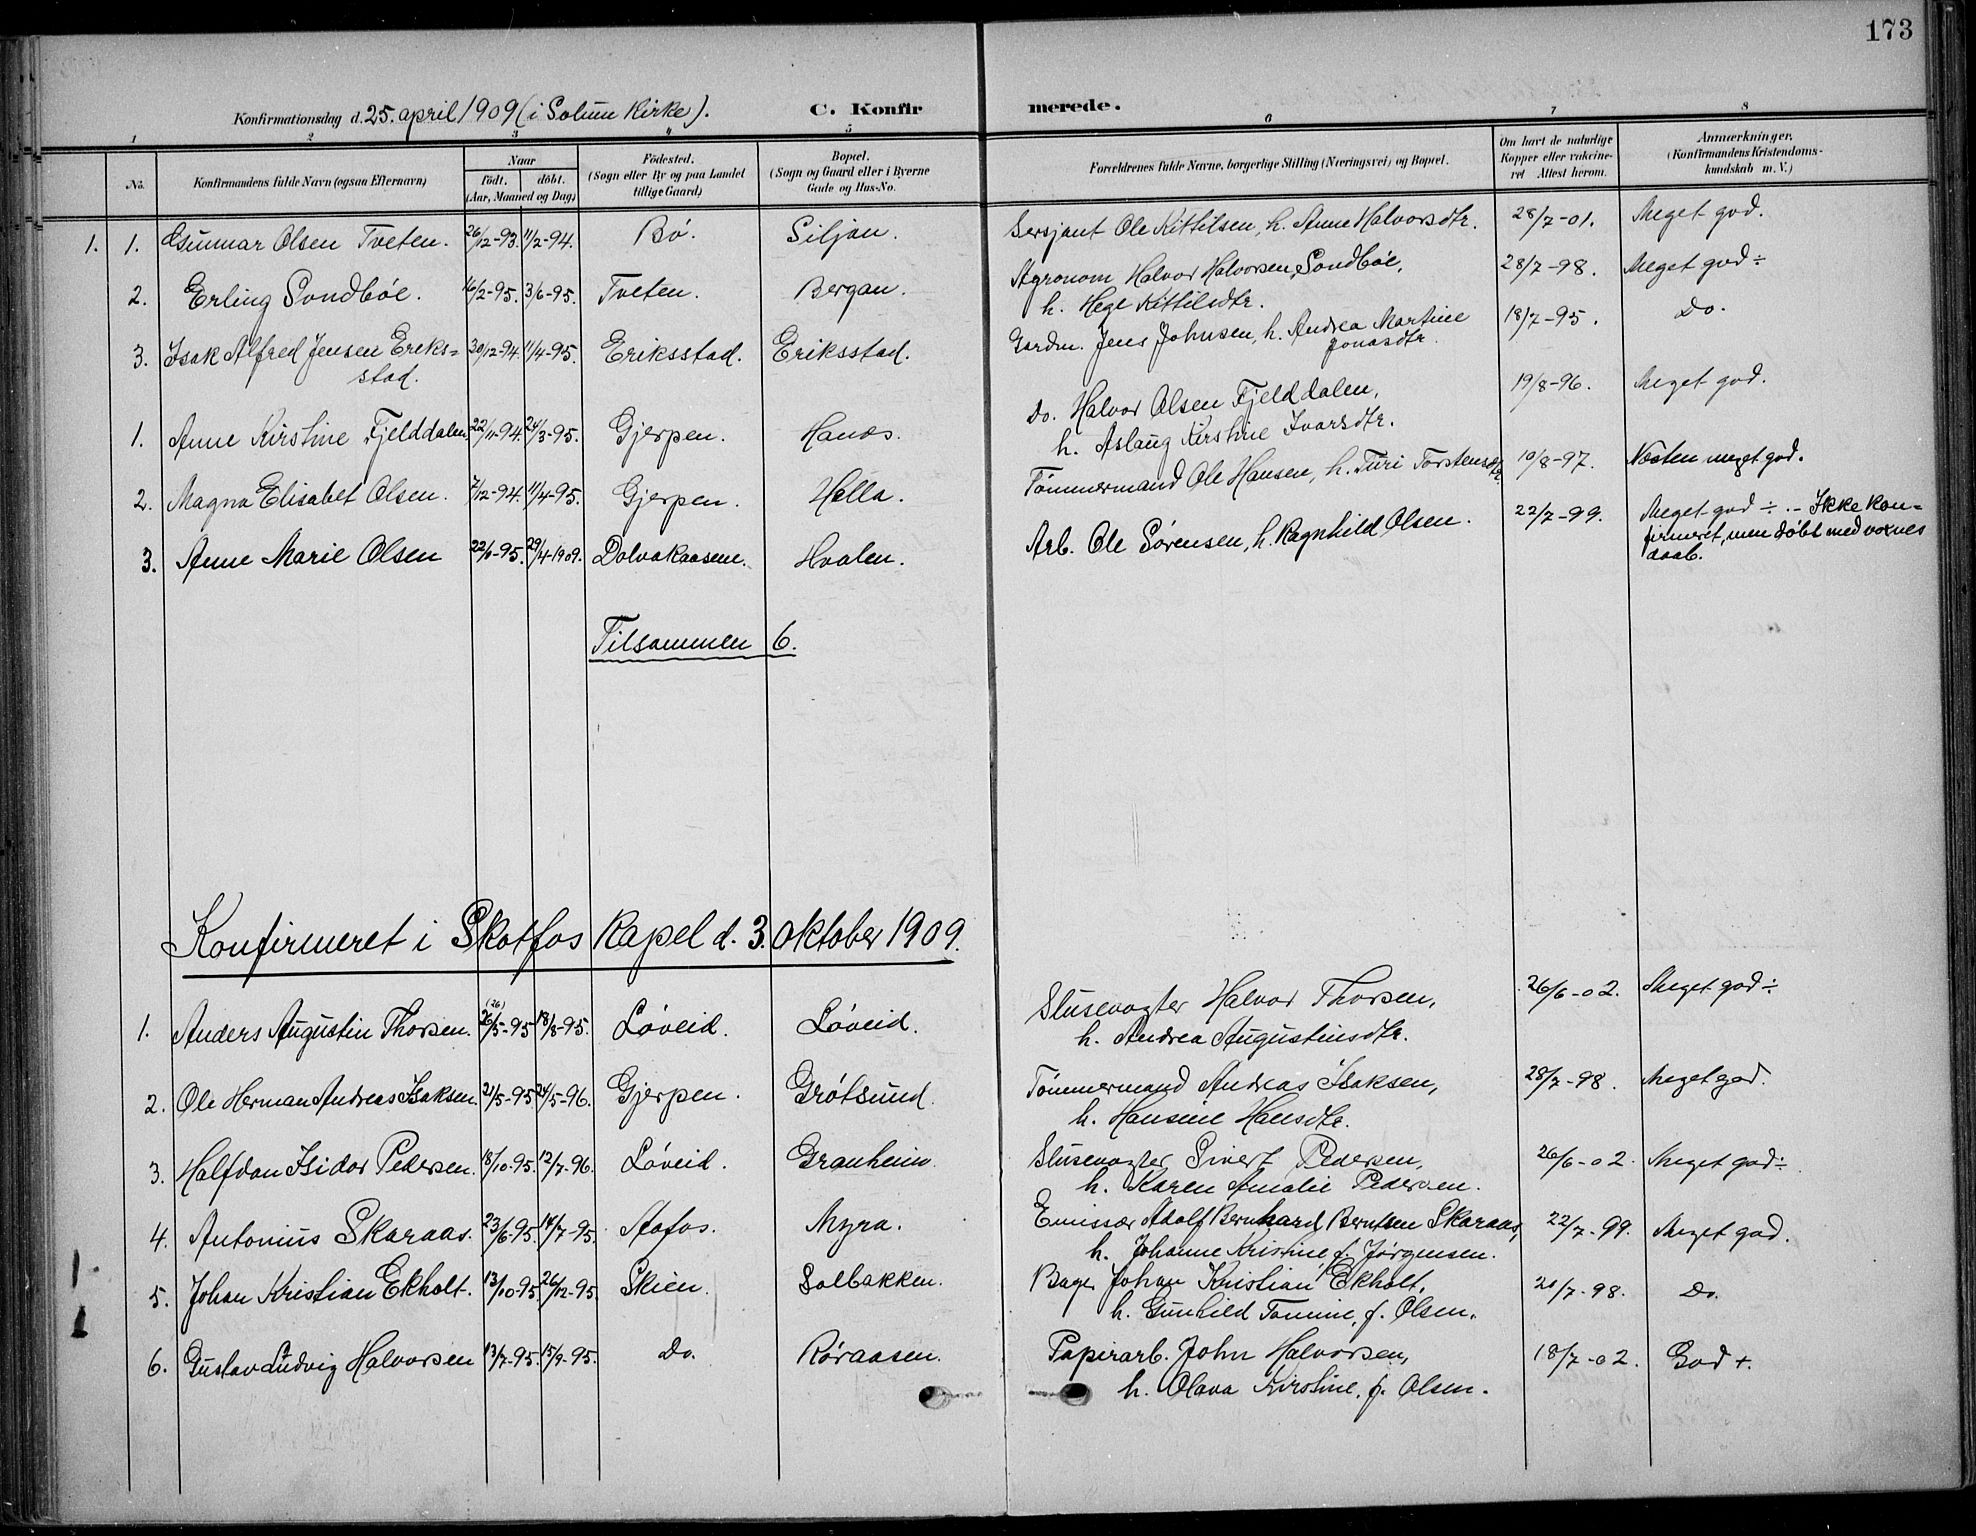 173
Konfirmationsdag d. 25. april 1909 (i Solum Kirke). C. Konfirmerede.
1 2 3 4 5 6 7 8
No. Konfirmandens fulde Navn (ogsaa Efternavn) Naar født. døbt. (Aar, Maaned og Dag) Fødested. (Sogn eller By og paa Landet tillige Gaard) Bopæl. (Sogn og Gaard eller i Byerne Gade og Hus-No. Forældrenes fulde Navne, borgerlige Stilling (Næringsvei) og Bopæl. Om havt de naturlige Kopper eller vakcineret Attest herom. Anmærkninger. (Konfirmandens Kristendomskundskab m. V.)
1. 1. Gunnar Olsen Tveten. 26/12-93. 11/2-94. Bø. Siljan. Sersjant Ole Kittilsen, h. Anne Halvorsdtr. 28/7-01. Meget god.
2. Erling Sondbøe. 16/2-95. 3/6-95. Tveten. Bergan. Agronom Halvor Halvorsen Sondbøe, 28/7-98. Meget god ÷
h. Hege Kittilsdtr.
3. Isak Alfred Jensen Ereks= 30/12-94. 11/4-95. Eriksstad. Eriksstad. Gardm. Jens Johnsen, h. Andrea Martine 18/7-95. Do.
stad. Jonasdtr.
1. Anne Kirstine Fjelddalen. 22/11-94. 24/3-95. Gjerpen. Hanæs. Do. Halvor Olsen Fjelddalen, 19/8-96. Meget god.
h. Aslaug Kirstine Ivarsdtr.
2. Magna Elisabet Olsen. 7/12-94. 11/4-95. Gjerpen. Hella. Tømmermand Ole Hansen, h. Turi Torstensdtr. 10/8-97. Næsten meget god.
3. Anne Marie Olsen 22/6-95. 29/4-1909. Dolvakaasene. Hvalen. Arb. Ole Sørensen, h. Ragnhild Olsen. 22/7-99. Meget god ÷.- Ikke kon=
firmeret, men døbt med voxnes
daab.
Tilsammen 6.
Konfirmeret i Skotfos Kapel d. 3. oktober 1909.
1. Anders Augustin Thorsen. (26) 26/5-95 18/8-95. Løveid. Løveid. Slusevogter Halvor Thorsen, 26/6-02. Meget god ÷
h. Andrea Augustinsdtr.
2. Ole Herman Andreas Isaksen. 21/5-95 24/5-96. Gjerpen. Grøtsund. Tømmermand Andreas Isaksen, 28/7-98. Meget god.
h. Hansine Hansdtr.
3. Halfdan Isidor Pedersen. 18/10-95. 12/7-96. Løveid. Granheim. Slusevogter Sivert Pedersen, 26/6-02. Meget god ÷
h. Karen Amalie Pedersen.
4. Antonius Skaraas. 23/6-95. 14/7-95. Aafos. Myra. Emissær Adolf Bernhard Berntsen Skaraas, 22/7-99. Meget god.
h. Johanne Kristine f. Jørgensen.
5. Johan Kristian Ekholt. 13/10-95. 26/12-95. Skien. Solbakken. Bager Johan Kristian Ekholt, 21/7-98. Do.
h. Gunhild Tomine, f. Olsen.
6. Gustav Ludvig Halvorsen 13/7-95. 15/9-95. Do. Røraasen. Papirarb. John Halvorsen, 18/7-02. God +.
h. Olava Kirstine, f. Olsen.